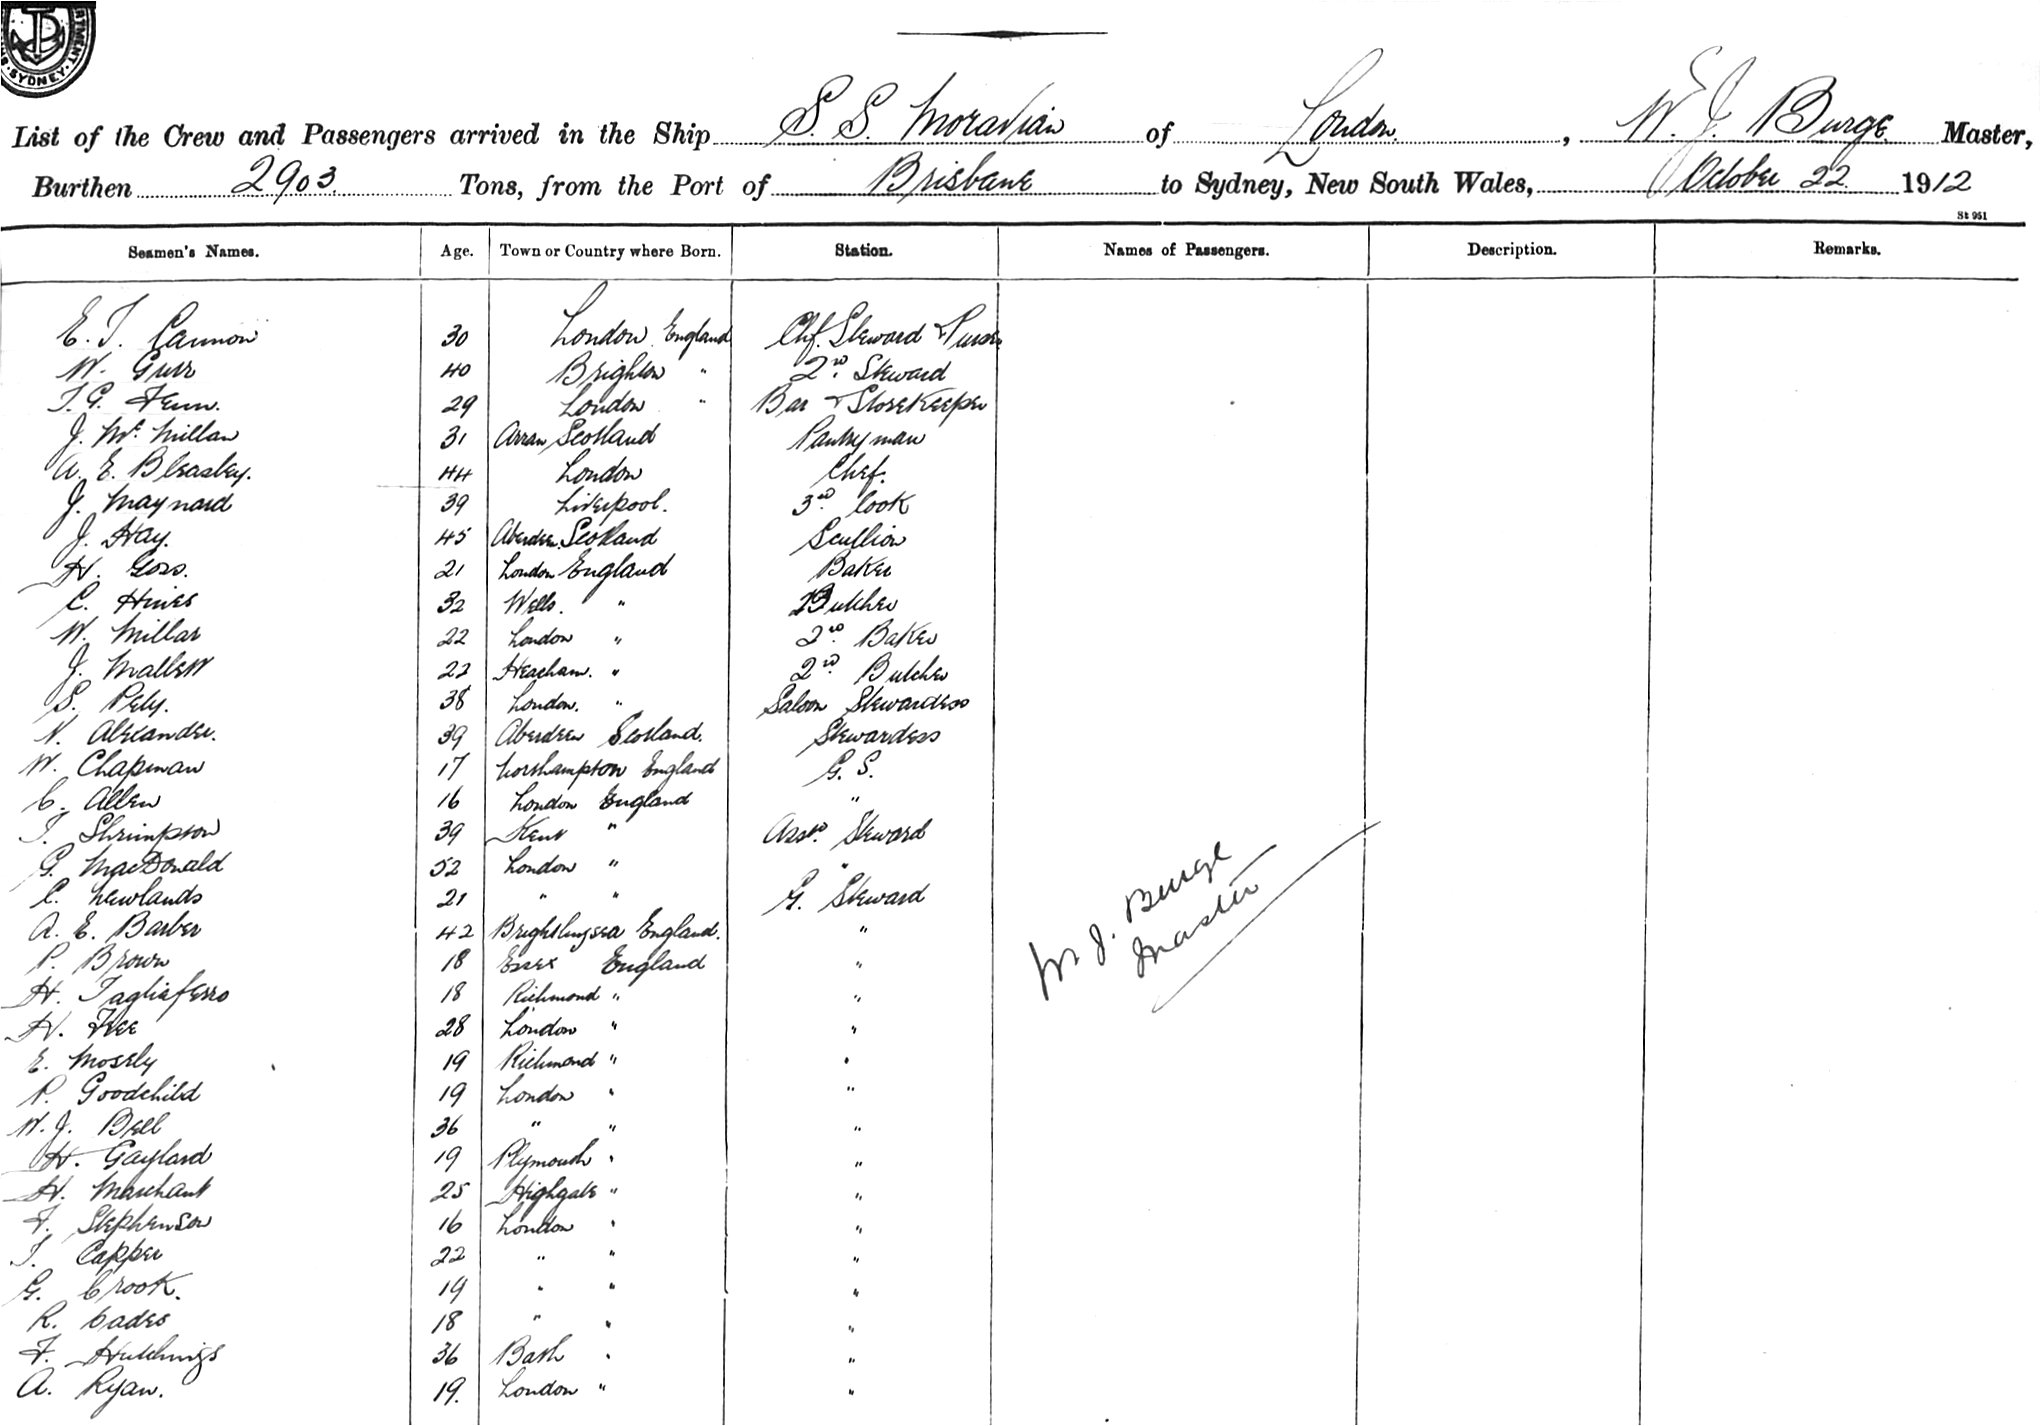 RTMENT. SYDNEY.
List of the Crew and Passengers arrived in the Ship S. S. Moravian of London, W. J. Burge Master,
Burthen 2903 Tons, from the Port of Brisbane to Sydney, New South Wales, October 22 1912
St 951
Seamen's Names. Age. Town or Country where Born. Station. Names of Passengers. Description. Remarks.
E. T. Cannon 30 London England Chf. Steward & Purser
W. Gurr 40 Brighton " 2nd. Steward
T. G. Fenn. 29 London " Bar & Storekeeper
J. Mc. Millan 31 Arran Scotland Pantryman
A. E. Bleasby. 44 London Chef.
J. Maynard 39 Liverpool. 3rd. Cook
J. Hay. 45 Aberdeen. Scotland Scullion
H. Goss. 21 London England Baker
C. Hines 32 Wells. " Butcher
W. Millar 22 London " 2nd. Baker
J. Mallett 22 Heacham. " 2nd. Butcher
S. Pely. 38 London. " Saloon Stewardess
N. Alexander. 39 Aberdeen Scotland. Stewardess
W. Chapman 17 Northampton England G. S.
C. Allen 16 London England "
T. Shrimpton 39 Kent " Asst. Steward
G. MacDonald 52 London " "
C. Newlands 21 " " G. Steward
A. E. Barber 42 Brightlingsea England. "
P. Brown 18 Essex England "
H. Tagliaferro 18 Richmond " "
H. Free 28 London " "
E. Mosely 19 Richmond " "
P. Goodchild 19 London " "
W. J. Bell 36 " " "
H. Gaylard 19 Plymouth " "
H. Marchant 25 Highgate " "
F. Stephenson 16 London " "
T. Capper 22 " " "
G. Crook. 19 " " "
R. Cades 18 " " "
F. Hutchings 36 Bath " "
A. Ryan. 19. London " "
W. J. Burge
Master